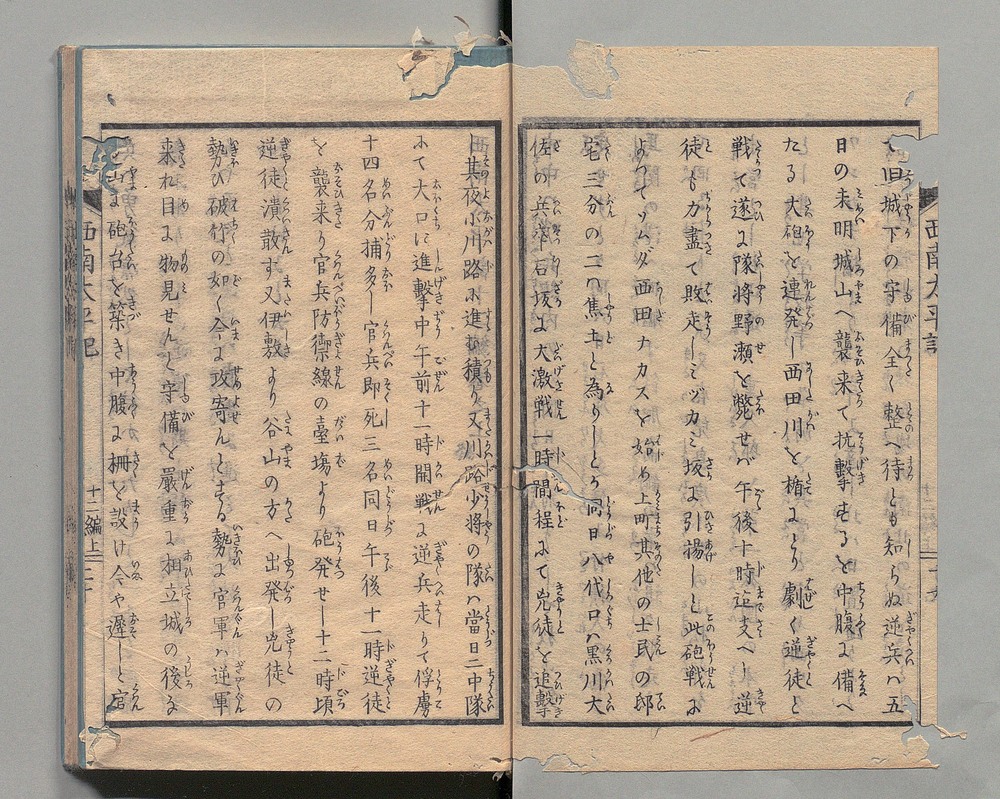 旦城下の守備全く整へ待とも知らぬ逆兵ハ五
日の未明城山へ襲来て抗撃するを中腹に備へ
たる大砲を連発し西田川を楯により劇く逆徒と
戦て遂に隊将野瀬を斃せバ午後十時迠支へし逆
徒も力盡て敗走しミツカミ坂に引揚しと此砲戦に
よつてソムダ西田ナカスを始め上町其他の士民の邸
宅三分の二ハ焦土と為りしとか同日八代口ハ黒川大
佐の兵卒石坂に大激戦一時間程にて兇徒を追撃
其夜水川路に進む積り又川路少将の隊ハ當日二中隊
にて大口に進撃中午前十一時開戦に逆兵走りて俘虜
十四名分捕多し官兵即死三名同日午後十一時逆徒
を襲来り官兵防禦線の臺場より砲発せし十二時頃
逆徒潰散す又伊敷より谷山の方へ出発し兇徒の
勢ひ破竹の如く今に攻寄んとする勢に官軍ハ逆軍
来れ目に物見せんと守備を嚴重に相立城の後る
山に砲台を築き中腹に柵を設け今や遅しと官
西南太平記
十二編上